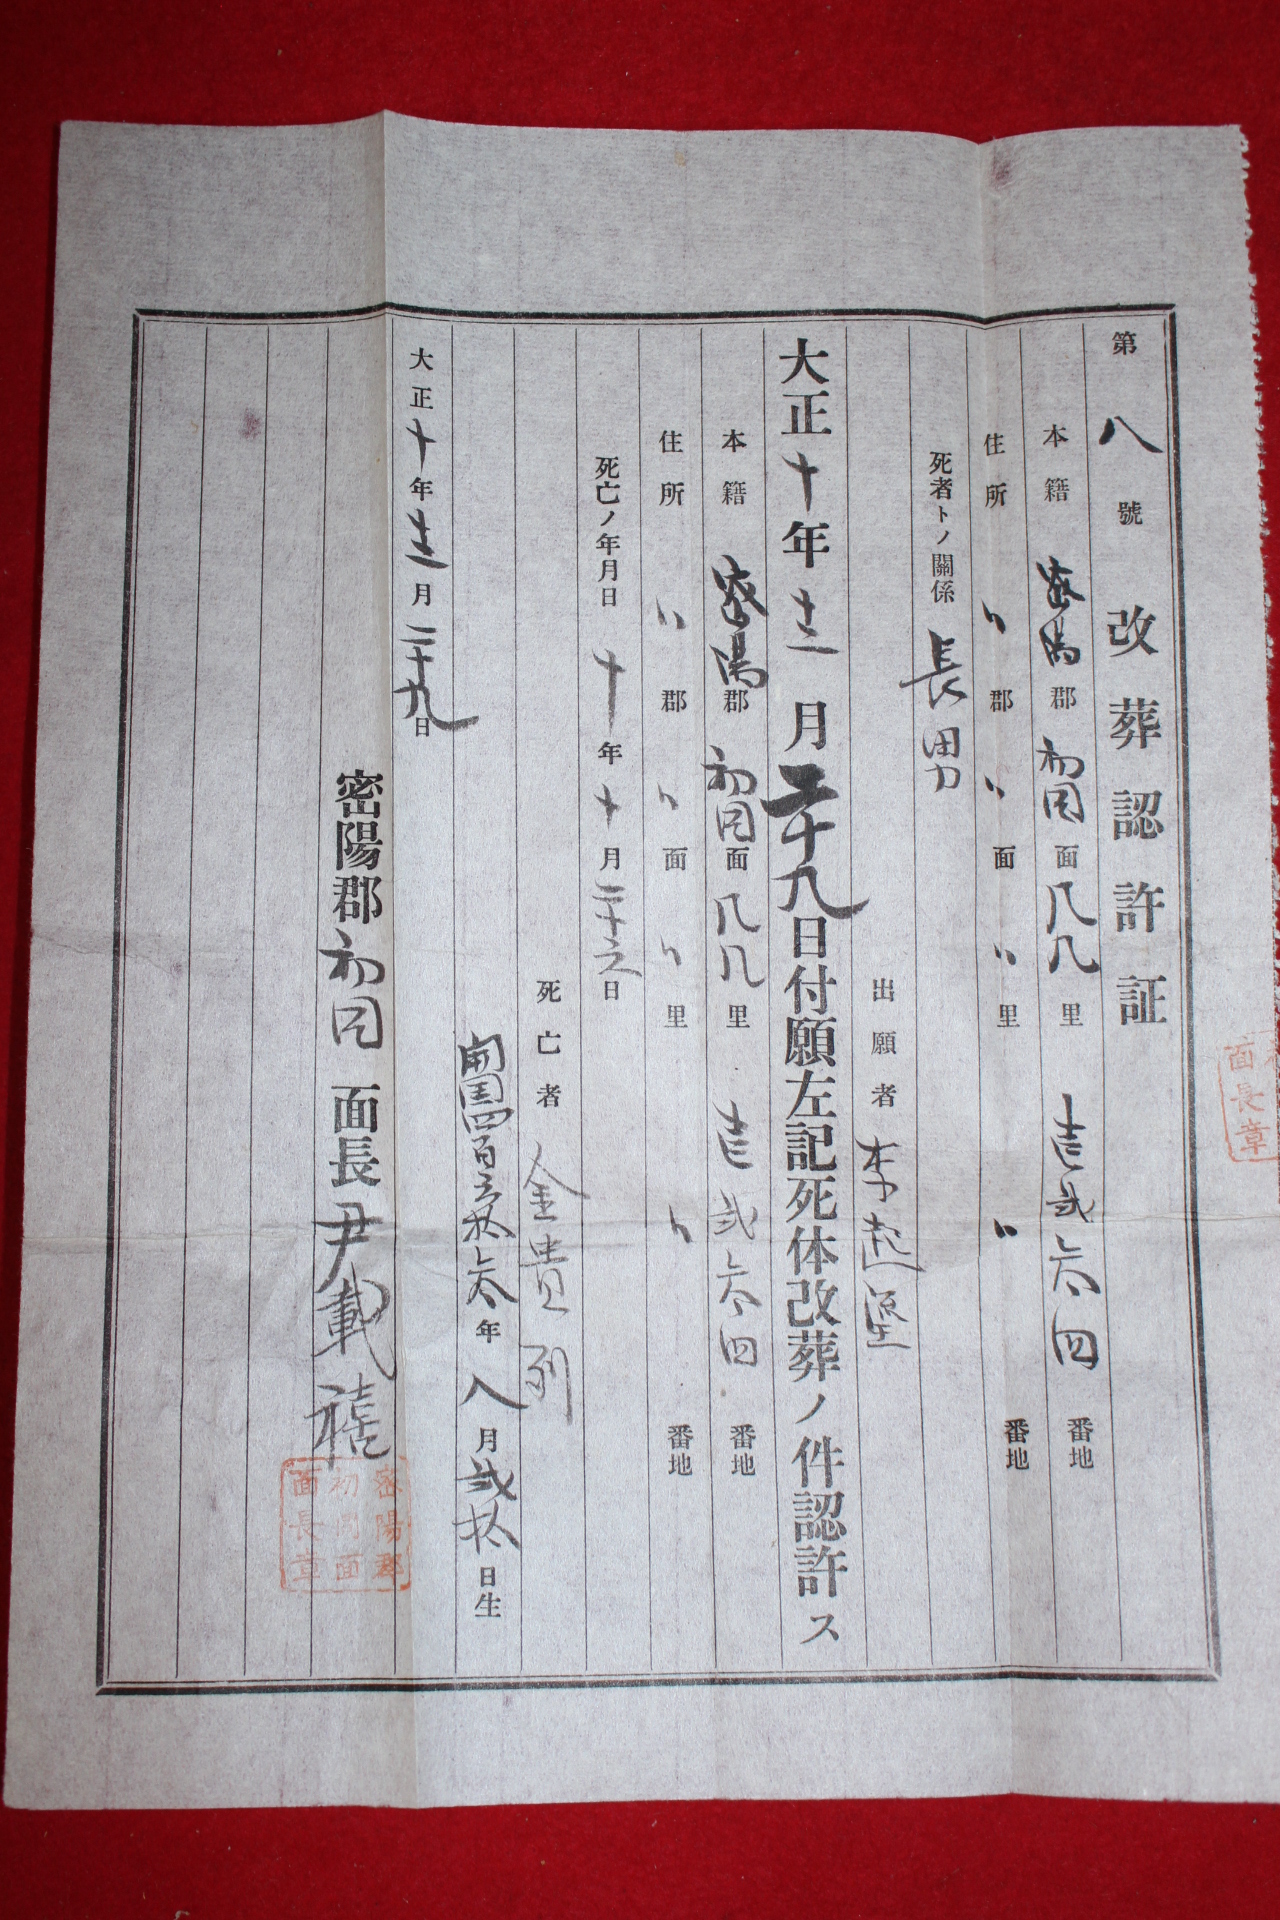 第八號 改葬認許証
本籍 密陽郡 初同面 凡凡里 壱弐六四 番地
住所 〃郡 〃面 〃里 〃 番地
死者トノ關係 長男
出願者 李起
大正十年 月二十九日付願左記死体改葬ノ件認許ス
本籍 密陽郡 初同面 凡凡里 壱弐六四 番地
住所 〃郡 〃面 〃里 〃 番地
死亡ノ年月日 十年十月二十六日
死亡者 金貴列
開国四百 拾六年八月弐拾日生
大正十年 月二十九日
密陽郡初同面長 尹載禧
密陽郡
初同面
面長章
面長章